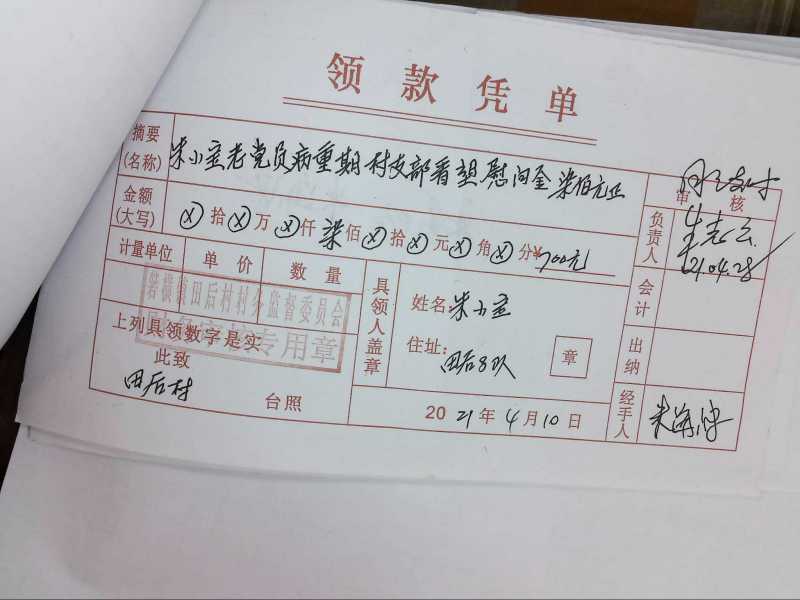 领款凭单
摘要(名称) 朱小宝老党员病重期村支部看望慰问金柒佰元正
审核
金额(大写) ⊗拾⊗万⊗仟柒佰⊗拾⊗元⊗角⊗分¥700元
负责人
21.04.28
计量单位 单价 数量
箬横镇田后村村务监督委员会
专用章
上列具领数字是实
此致
田后村
台照
具领人盖章
姓名:朱小宝
住址:田后8队
章
2021年4月10日
会计
出纳
经手人